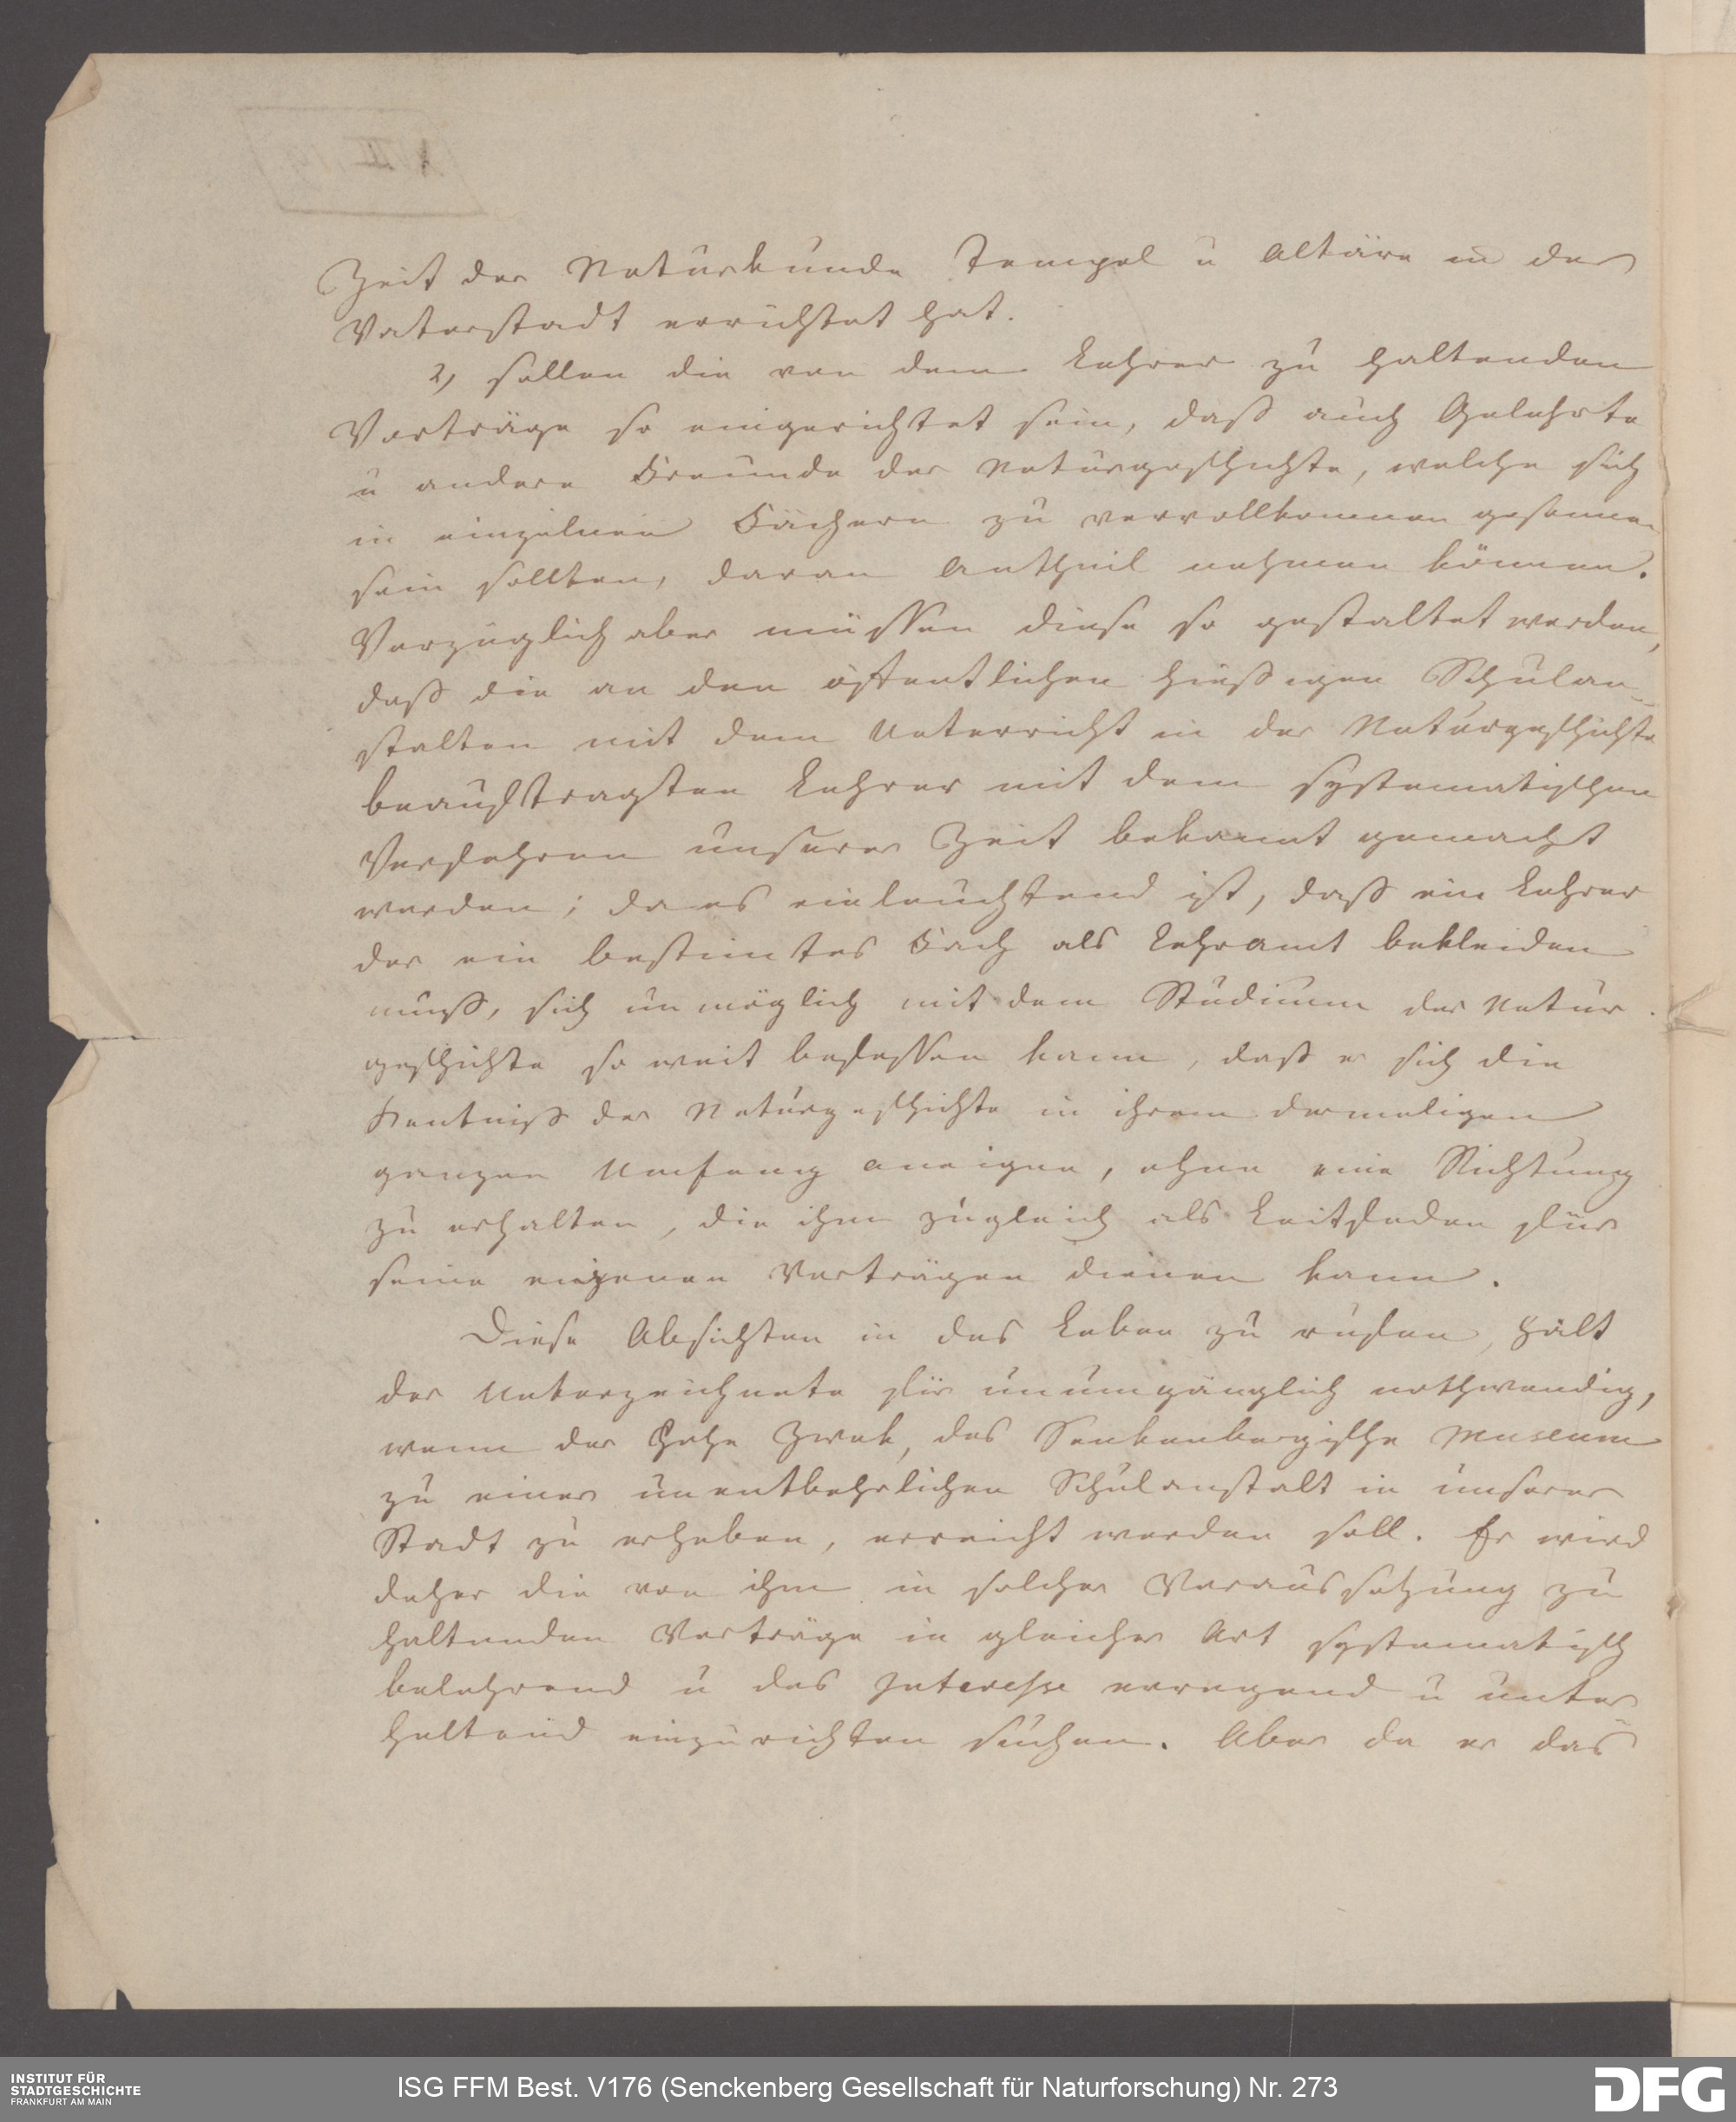 Zeit der Naturkunde Tempel u Altäre in der
Vaterstadt errichtet hat.
2, sollen die von dem Lehrer zu haltenden
Vorträge so eingerichtet sein, daß auch Gelehrte
u andere Freunde der Naturgeschichte, welche sich
in einzelnen Fächern zu vervollkommen gesonnen
sein sollten, daran Antheil nehmen können.
Vorzüglich aber müssen diese so gestaltet werden,
daß die an den öffentlichen hießigen Schulan-
stalten mit dem Unterricht in der Naturgeschichte
beauftragten Lehrer mit dem systematischen
Verfahren unserer Zeit bekannt gemacht
werden; da es einleuchtend ist, daß ein Lehrer
der ein bestimtes Fach als Lehramt bekleiden
muß, sich unmöglich mit dem Studium der Natur-
geschichte so weit befassen kann, daß er sich die
Kentniß der Naturgeschichte in ihrem dermaligen
ganzen Umfang aneigne, ohne eine Richtung
zu erhalten, die ihm zugleich als Leitfaden für
seine eigenen Vorträgen dienen kann.
Diese Absichten in das Leben zu rufen, hält
der Unterzeichnete für unumgänglich nothwendig,
wenn der hohe Zwek, das Senkenbergische Museum
zu einer unentbehrlichen Schulanstalt in unserer
Stadt zu erheben, erreicht werden soll. Er wird
daher die von ihm in solcher Voraussetzung zu
haltenden Vorträge in gleicher Art systematisch
belehrend u das Interesse erregend u unter
haltend einzurichten suchen. Aber da er das
INSTITUT FÜR
STADTGESCHICHTE
FRANKFURT AM MAIN
ISG FFM Best. V176 (Senckenberg Gesellschaft für Naturforschung) Nr. 273
DFG